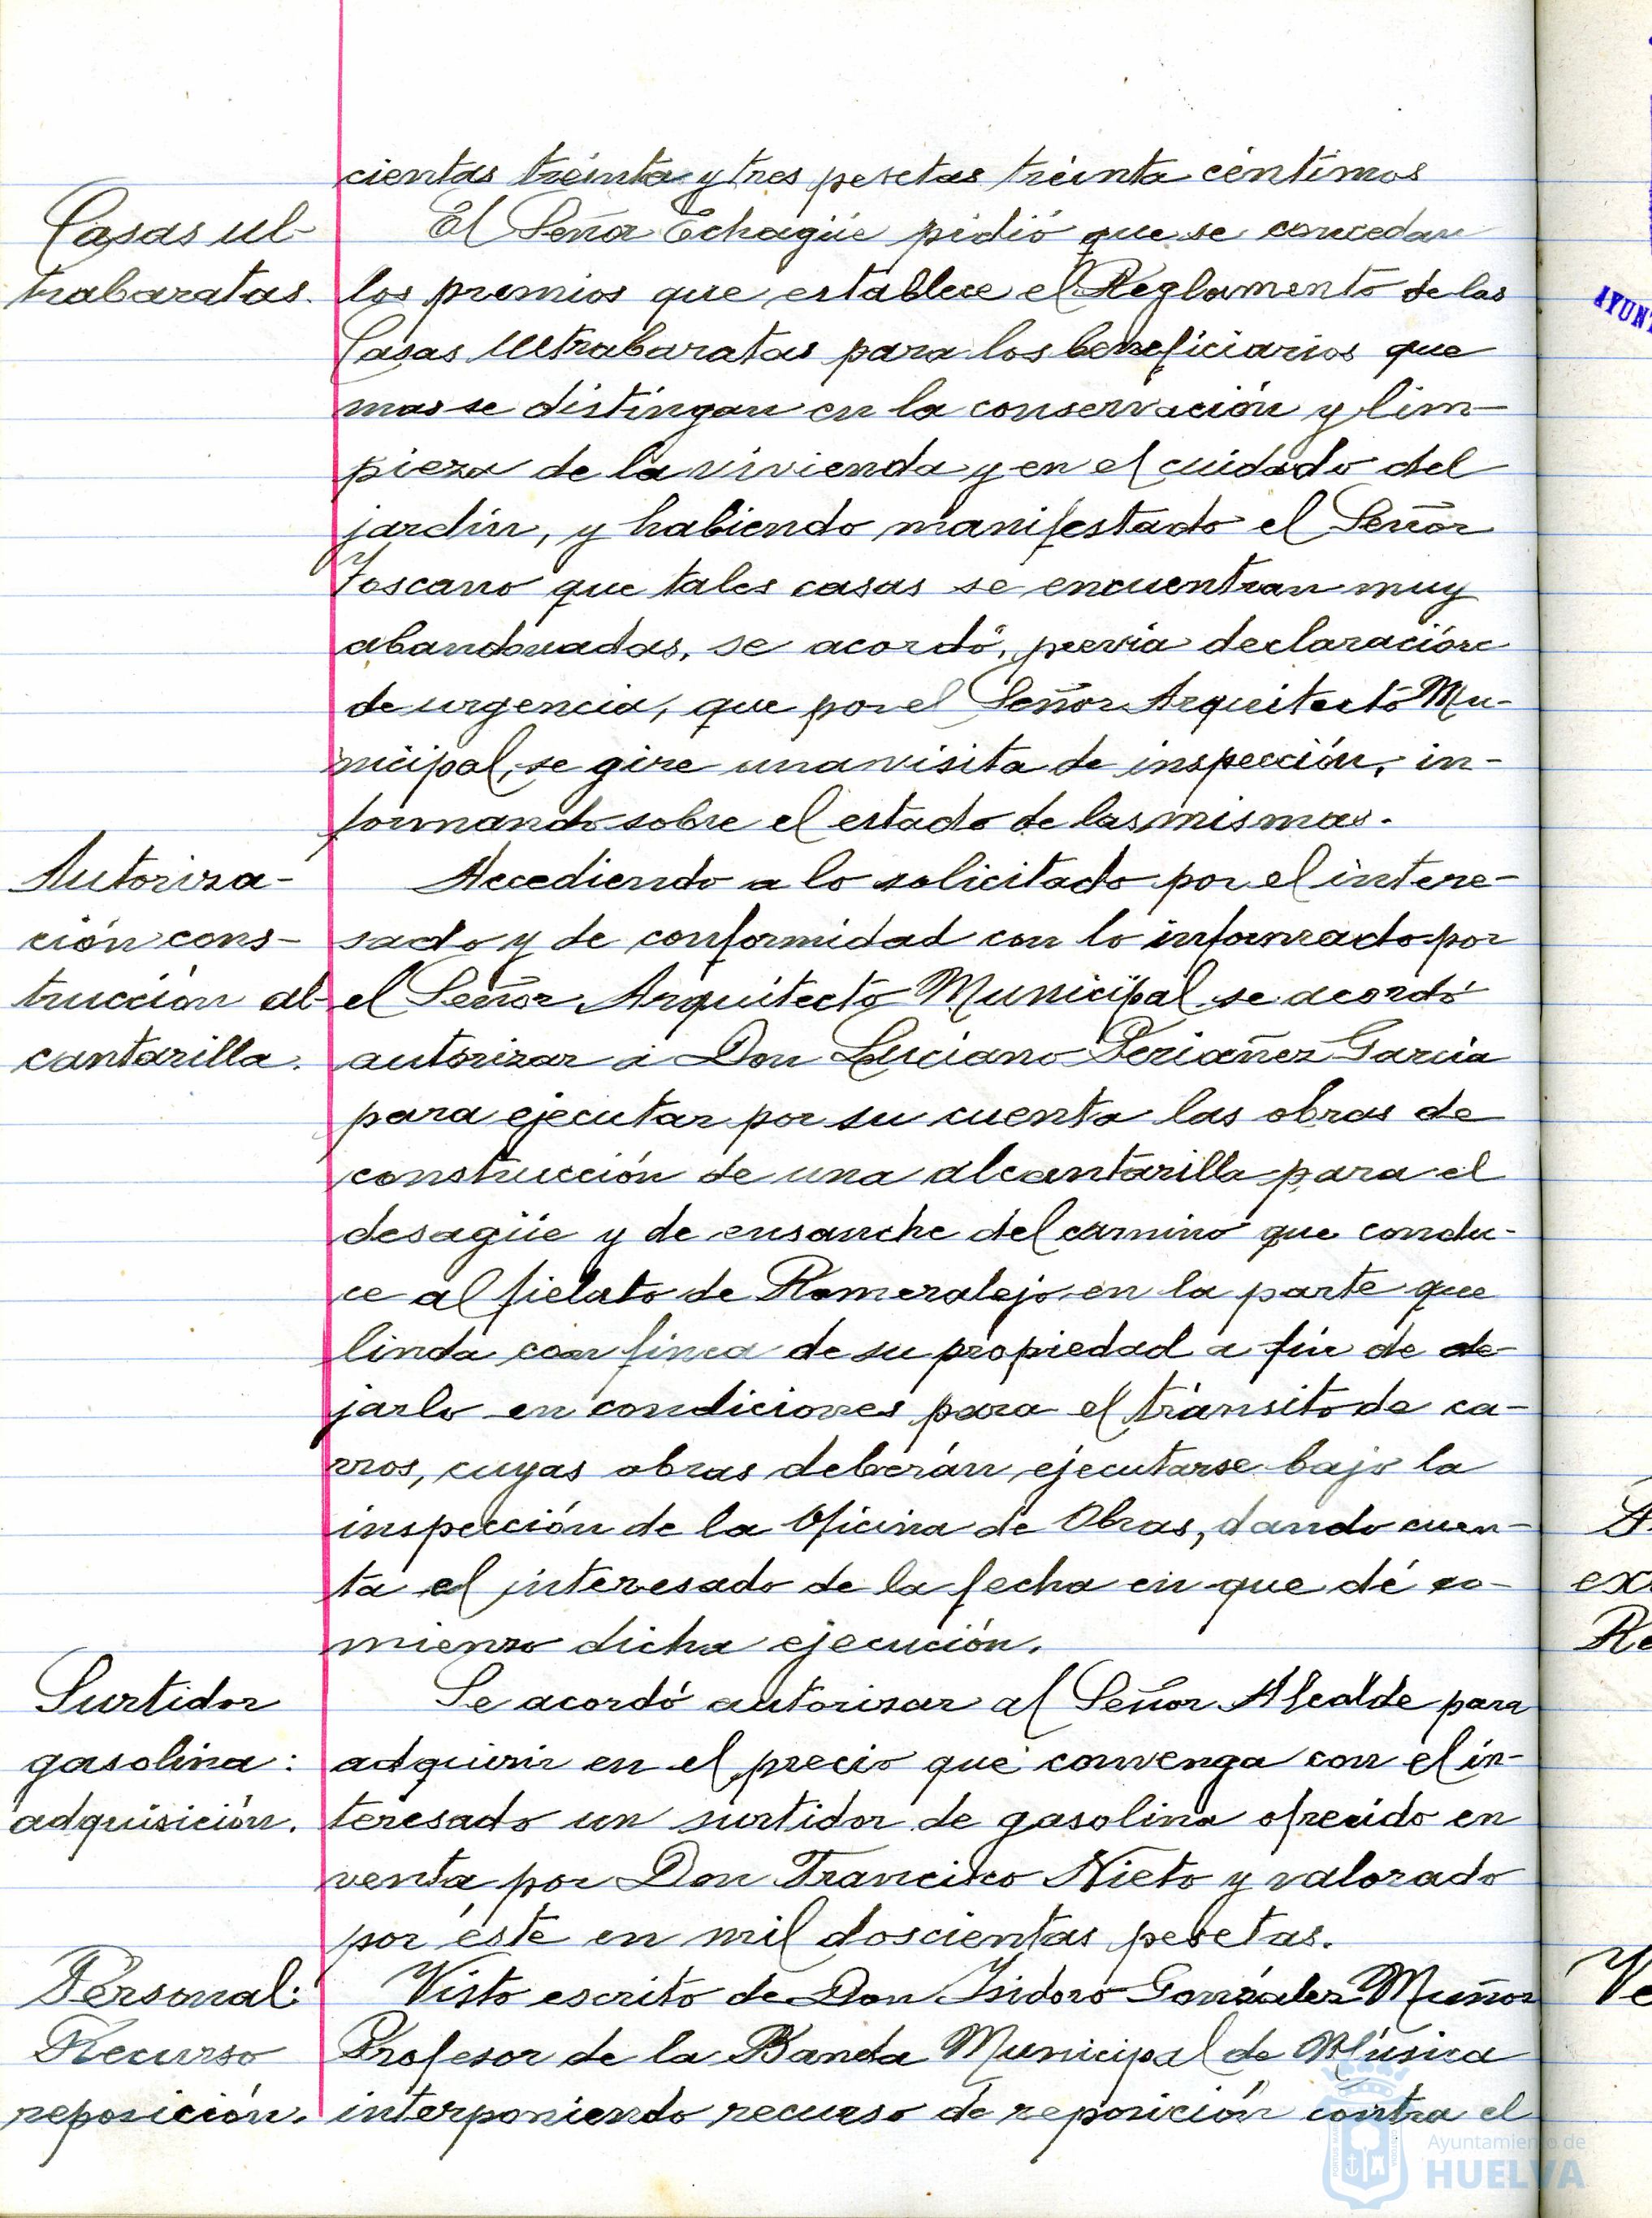 cientas treinta y tres pesetas treinta céntimos
Casas ul-
trabaratas.
El Señor Echagüe pidió que se concedan
los premios que establece el Reglamento de las
Casas Ultrabaratas para los beneficiarios que
mas se distingan en la conservación y lim-
pieza de la vivienda y en el cuidado del
jardín, y habiendo manifestado el Señor
Toscano que tales casas se encuentran muy
abandonadas, se acordó, previa declaración
de urgencia, que por el Señor Arquitecto Mu-
nicipal, se gire una visita de inspección, in-
formando sobre el estado de las mismas.
Autoriza-
ción cons-
trucción al-
cantarilla.
Accediendo a lo solicitado por el intere-
sado y de conformidad con lo informado por
el Señor Arquitecto Municipal se acordó
autorizar a Don Luciano Periañez Garcia
para ejecutar por su cuenta las obras de
construcción de una alcantarilla para el
desagüe y de ensanche del camino que condu-
ce al fielato de Romeralejo en la parte que
linda con finca de su propiedad a fin de de-
jarlo en condiciones para el tránsito de ca-
rros, cuyas obras deberán ejecutarse bajo la
inspección de la Oficina de Obras, dando cuen-
ta el interesado de la fecha en que dé co-
mienzo dicha ejecución.
Surtidor
gasolina:
adquisición.
Se acordó autorizar al Señor Alcalde para
adquirir en el precio que convenga con el in-
teresado un surtidor de gasolina ofrecido en
venta por Don Francisco Nieto y valorado
por éste en mil doscientas pesetas.
Personal:
Recurso
reposición.
Visto escrito de Don Isidoro González Muñoz
Profesor de la Banda Municipal de Música
interponiendo recurso de reposición contra el
Ayuntamiento de
HUELVA
AYUN
ex
Re
Ve